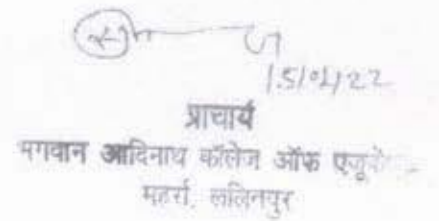 15/01/22
प्राचार्य
भगवान आदिनाथ कॉलेज ऑफ
महर्रा, ललितपुर